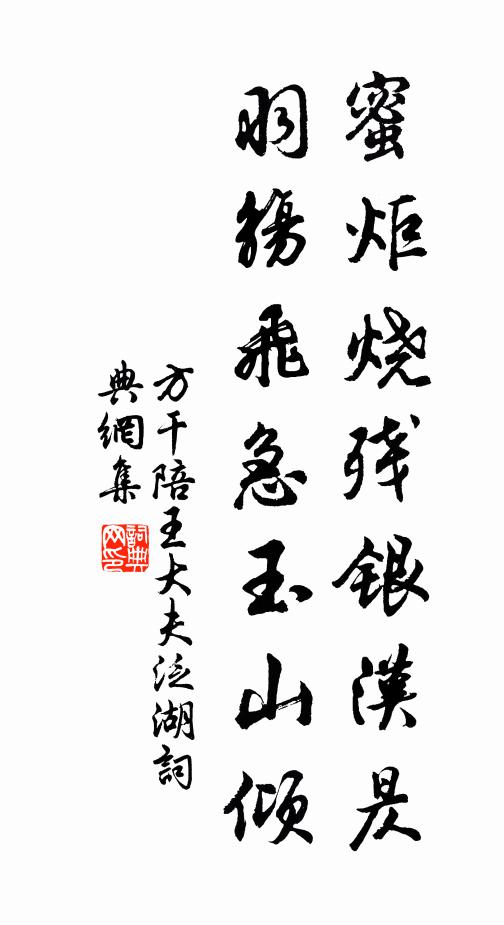 蜜炬烧残银汉昃
羽觞飞急玉山倾
方干陪王大夫泛湖詞
典網集
詞典網印